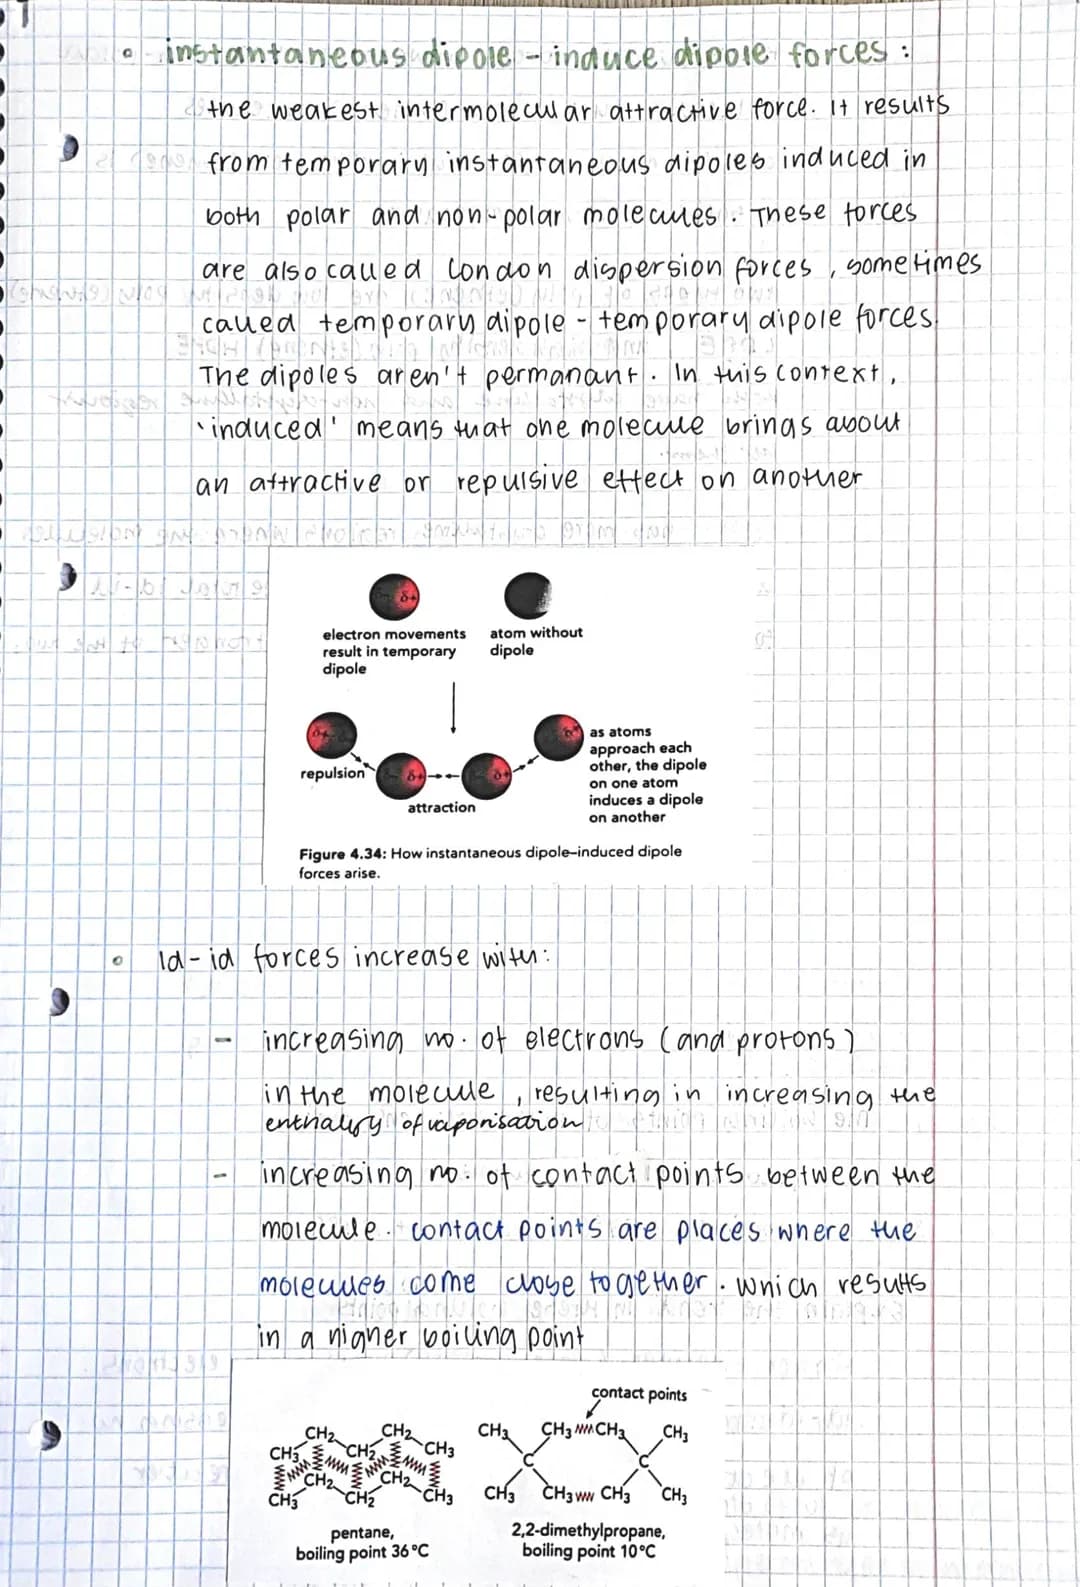 instantaneous dipole - induce dipole forces :
the weakest intermolecular attractive force. It results
from temporary instantaneous dipoles induced in
both polar and non-polar molecules. These forces
are also called london dispersion forces, sometimes
called temporary dipole - temporary dipole forces.
The dipoles aren't permanant. In this context,
'induced' means that one molecule brings about
an attractive or repulsive effect on another
δ+
electron movements
result in temporary
dipole
atom without
dipole
δ+
δ+
δ+
δ+
repulsion
attraction
as atoms
approach each
other, the dipole
on one atom
induces a dipole
on another
Figure 4.34: How instantaneous dipole–induced dipole
forces arise.
Id-id forces increase with:
- increasing no. of electrons (and protons)
in the molecule, resulting in increasing the
enthalpy of vaporisation
- increasing no. of contact points between the
molecule. contact points are places where the
molecules come close together. which results
in a higher boiling point
contact points
CH₂ CH₂
CH₃ CH₂ CH₃
CH₂ CH₂
CH₃ CH₂ CH₃
pentane,
boiling point 36°C
CH₃ CH₃ CH₃ CH₃
C C
CH₃ CH₃ CH₃ CH₃
2,2-dimethylpropane,
boiling point 10°C